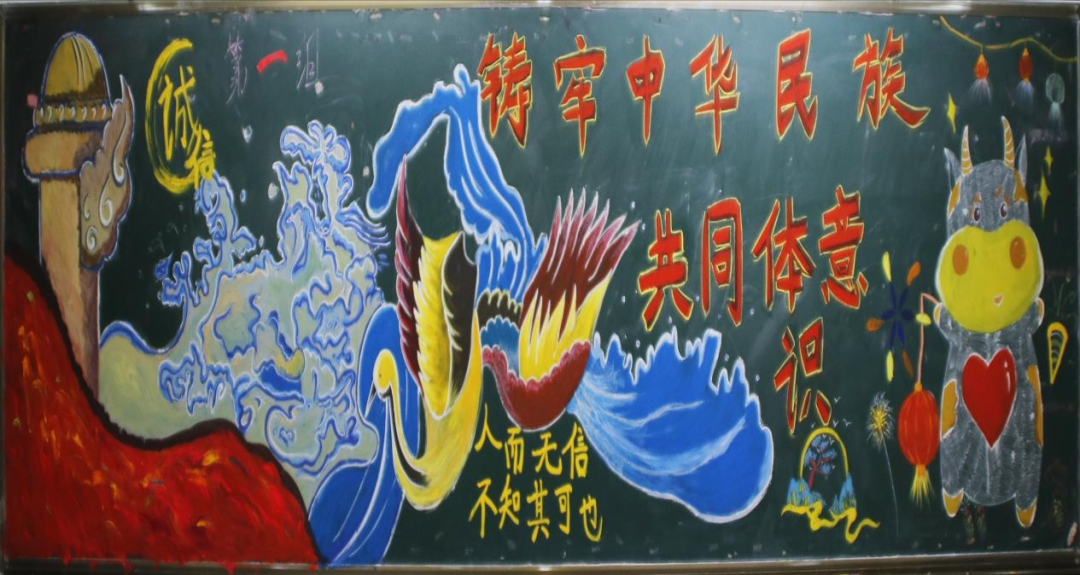 诚信
第一
铸牢中华民族
共同体意
识
人而无信
不知其可也